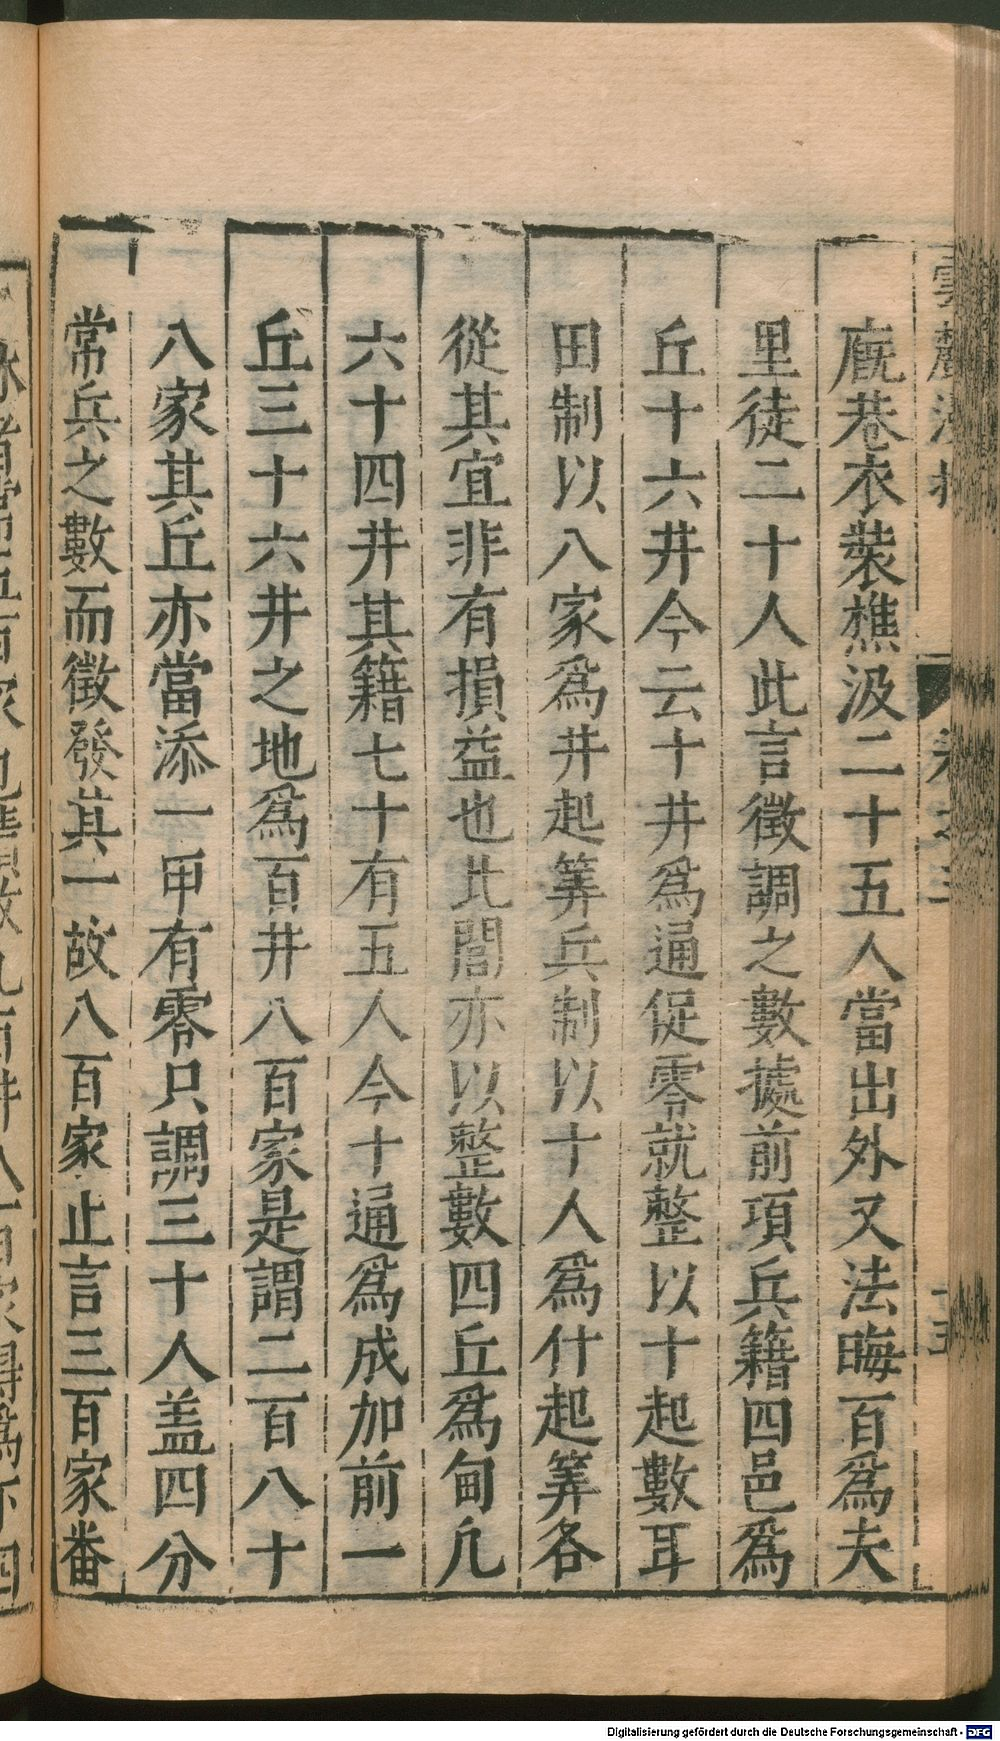 廐巷衣裝樵汲二十五人當出外又法晦百爲夫
里徒二十人此言徵調之數據前項兵籍四邑爲
丘十六井今云十井爲通促零就整以十起數耳
田制以八家爲井起筭兵制以十人爲什起筭各
從其宜非有損益也此閒亦以整數四丘爲甸凡
六十四井其籍七十有五人今十通爲成加前一
丘三十六井之地爲百井八百家是謂二百八十
八家其丘亦當添一甲有零只調三十人盖四分
常兵之數而徵發其一故八百家止言三百家番
Digitalisierung gefördert durch die Deutsche Forschungsgemeinschaft - DFG